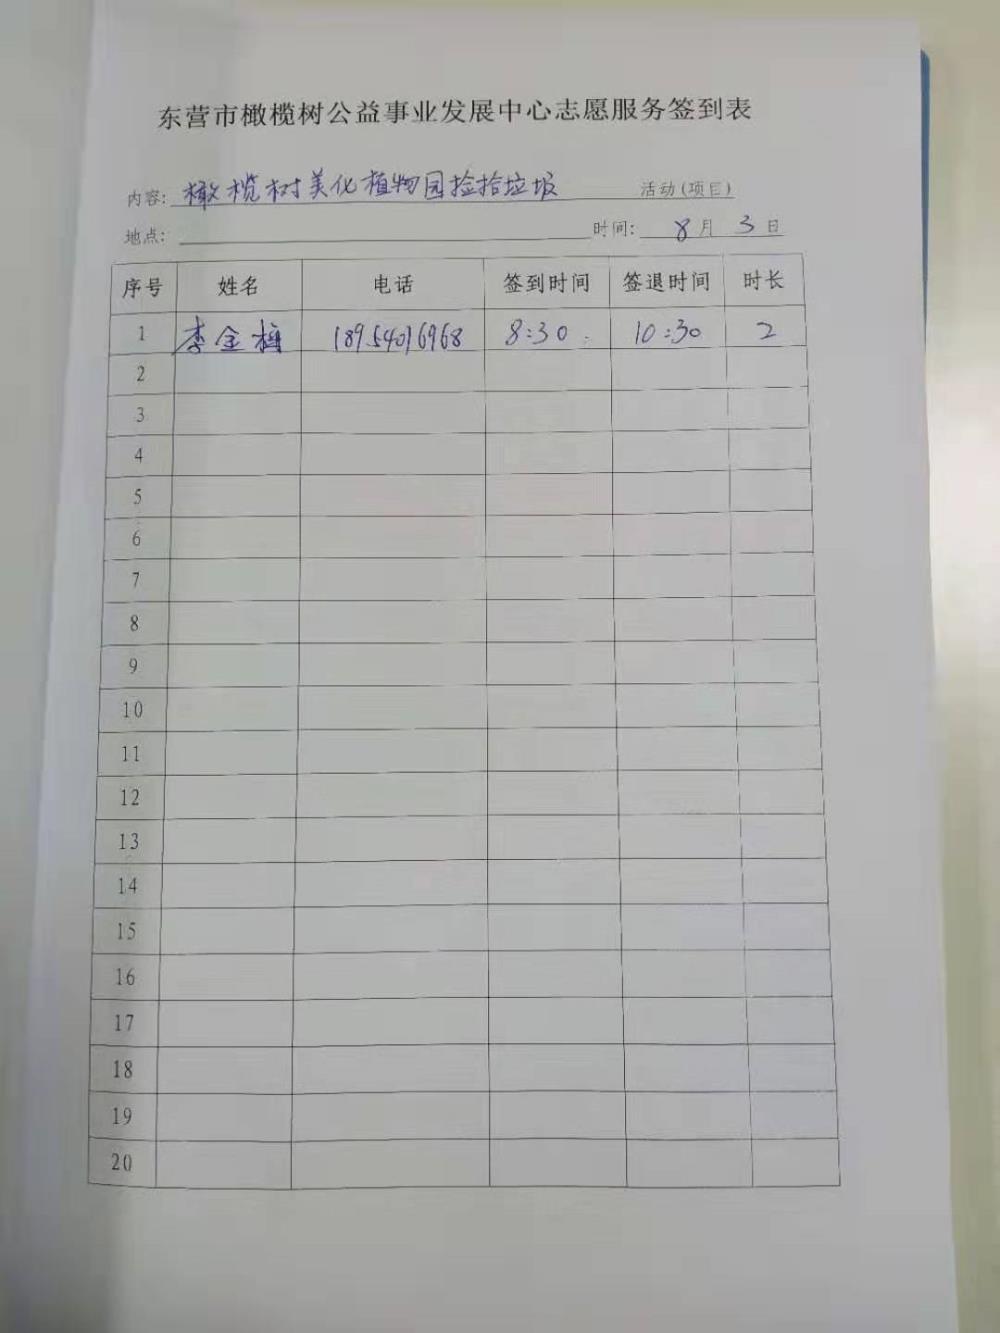 东营市橄榄树公益事业发展中心志愿服务签到表
内容: 橄榄树美化植物园捡拾垃圾 活动(项目)
地点: 时间: 8月3日
序号 姓名 电话 签到时间 签退时间 时长
1 李金梅 18954016968 8:30 10:30 2
2
3
4
5
6
7
8
9
10
11
12
13
14
15
16
17
18
19
20